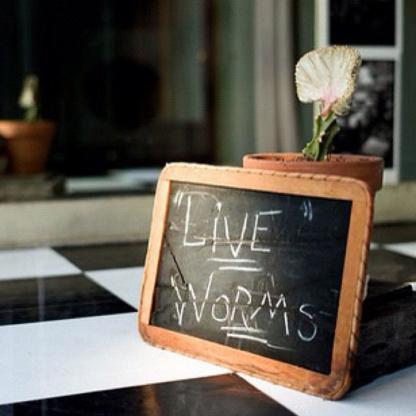 "LIVE"
WORMS